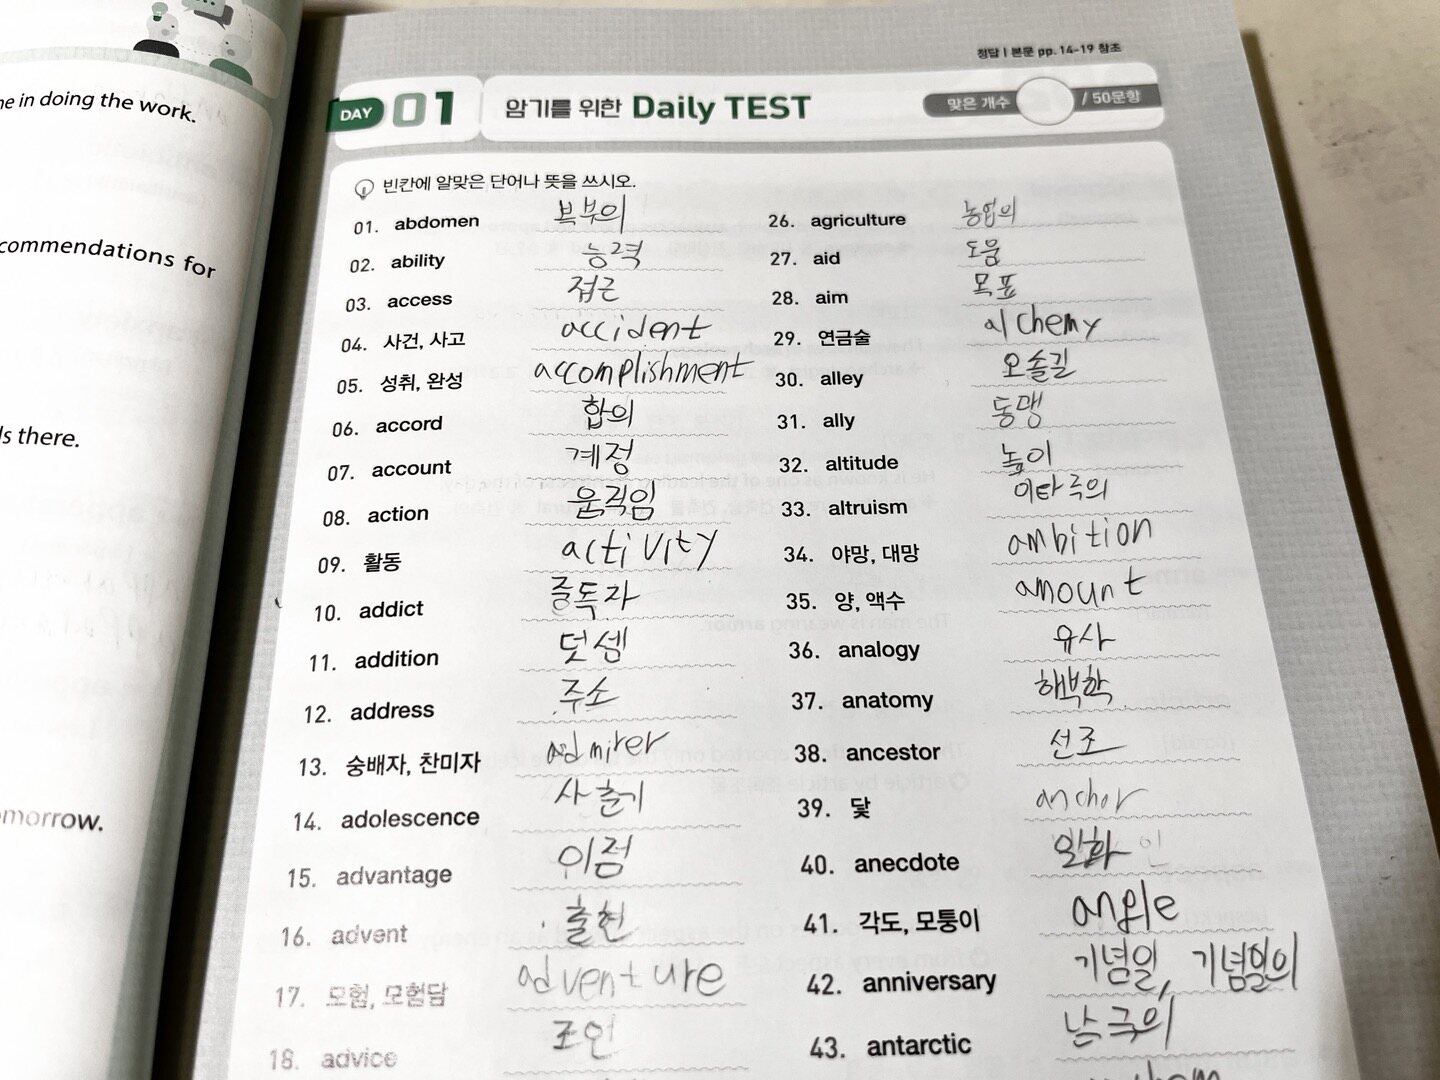 ne in doing the work.
commendations for
ls there.
omorrow.
정답 | 본문 pp. 14-19 참조
DAY 01 암기를 위한 Daily TEST 맞은 개수 / 50문항
빈칸에 알맞은 단어나 뜻을 쓰시오.
01. abdomen 복부의
02. ability 능력
03. access 접근
04. 사건, 사고 accident
05. 성취, 완성 accomplishment
06. accord 합의
07. account 계정
08. action 움직임
09. 활동 activity
10. addict 중독자
11. addition 덧셈
12. address 주소
13. 숭배자, 찬미자 admirer
14. adolescence 사춘기
15. advantage 이점
16. advent 출현
17. 모험, 모험담 adventure
18. advice 조언
26. agriculture 농업의
27. aid 도움
28. aim 목표
29. 연금술 alchemy
30. alley 오솔길
31. ally 동맹
32. altitude 높이
33. altruism 이타주의
34. 야망, 대망 ambition
35. 양, 액수 amount
36. analogy 유사
37. anatomy 해부학
38. ancestor 선조
39. 닻 anchor
40. anecdote 일화
41. 각도, 모퉁이 angle
42. anniversary 기념일, 기념일의
43. antarctic 남극의